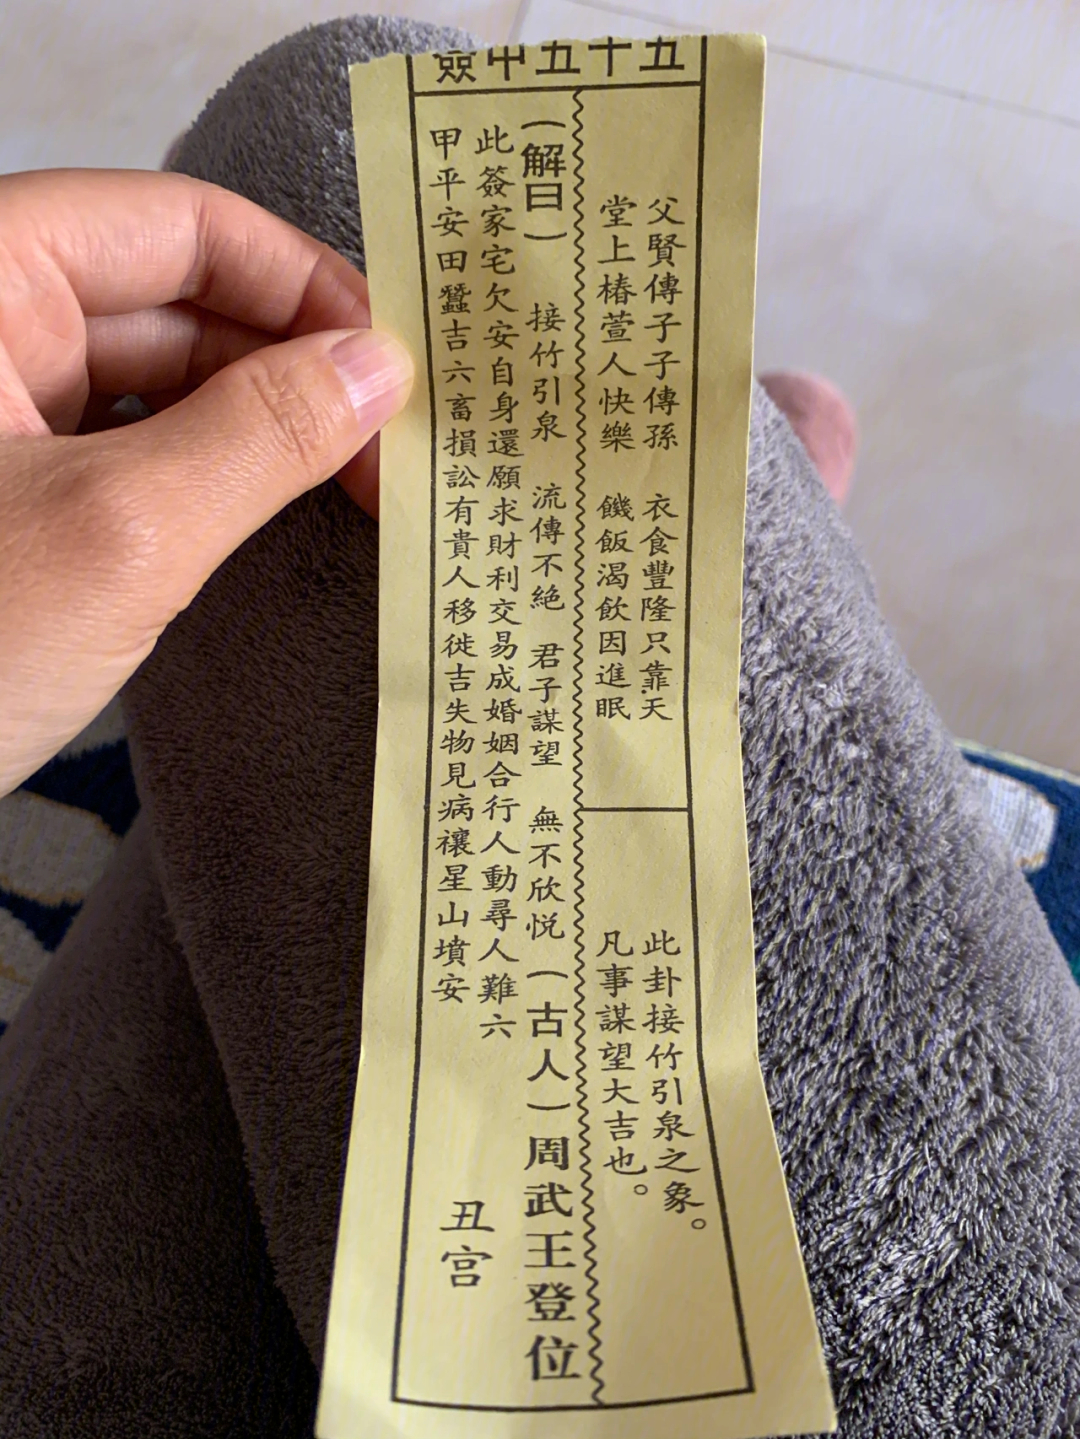 五十五中簽
父賢傳子子傳孫　衣食豐隆只靠天
堂上椿萱人快樂　饑飯渴飲因進眠
此卦接竹引泉之象。
凡事謀望大吉也。
（解曰）　接竹引泉　流傳不絕　君子謀望　無不欣悅（古人）周武王登位
此簽家宅欠安自身還願求財利交易成婚姻合行人動尋人難六
甲平安田蠶吉六畜損訟有貴人移徙吉失物見病禳星山墳安
丑宮